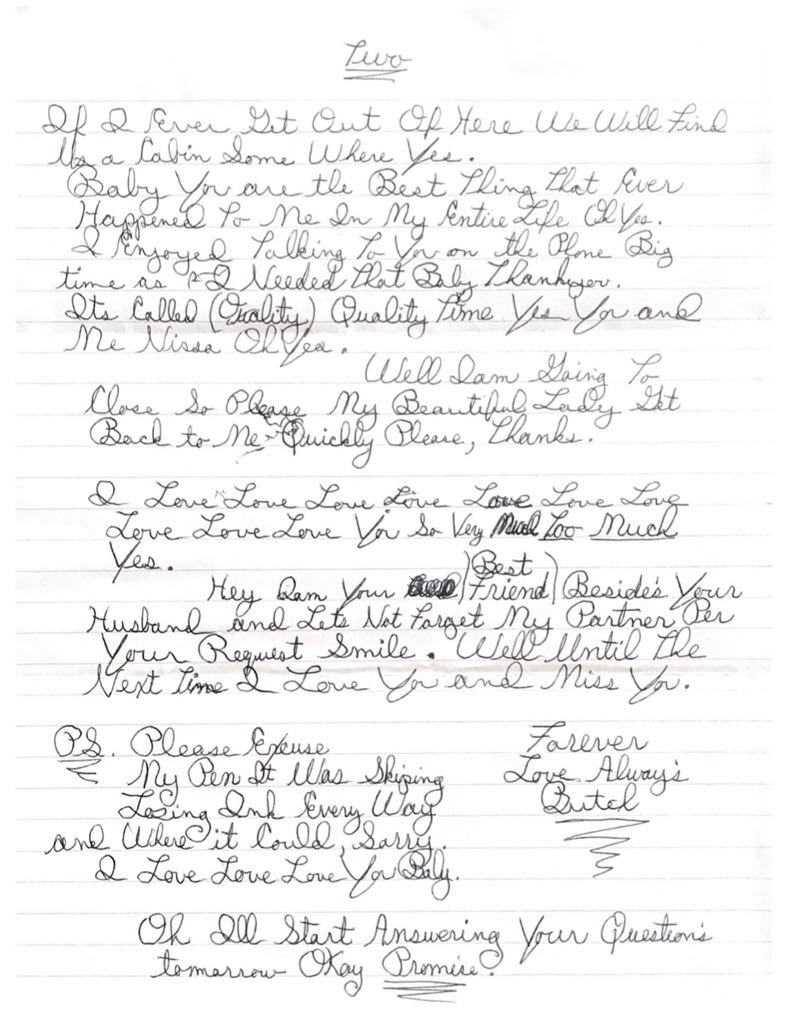 Two
If I Ever Get Out Of Here We Will Find
Us a Cabin Some Where Yes.
Baby You are the Best Thing That Ever
Happened To Me In My Entire Life Oh Yes.
I Enjoyed Talking To You on the Phone Big
time as I Needed That Baby Thankyou.
Its Called (Quality) Quality Time Yes You and
Me Nissa Oh Yea.
Well Iam Going To
Close So Please My Beautiful Lady Get
Back to Me Quickly Please, Thanks.
I Love Love Love Love Love Love Love
Love Love Love You So Very Much Too Much
Yes.
Hey Iam Your (Best Friend) Beside's Your
Husband and Lets Not Forget My Partner Per
Your Request Smile. Well Until The
Next Time I Love You and Miss You.
PS. Please Excuse
My Pen It Was Skiping
Losing Ink Every Way
and Where it Could, Sorry.
I Love Love Love You Baby.
Forever
Love Alway's
Butch
Oh Ill Start Answering Your Question's
tomorrow Okay Promise.